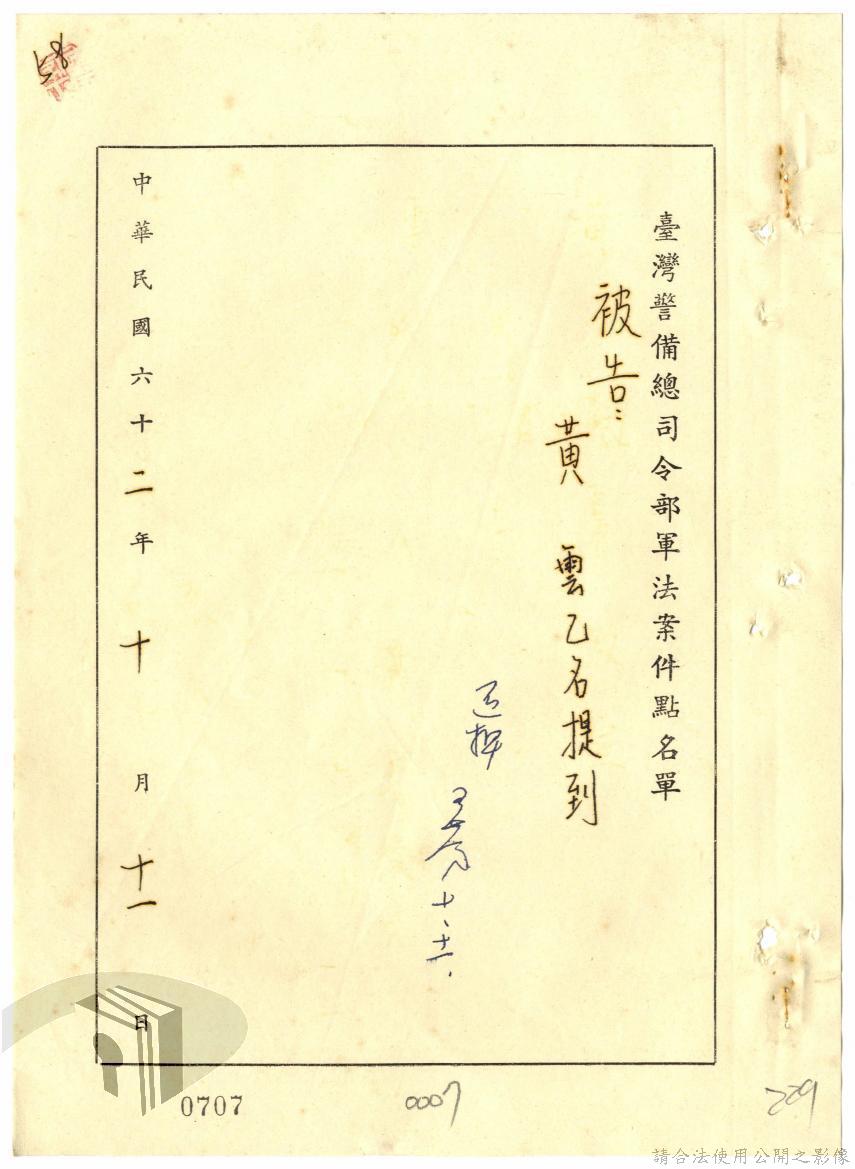 58
臺灣警備總司令部軍法案件點名單
被告:
黃雲乙名提到
十、十一.
中華民國六十二年十月十一日
0707
0007
229
請合法使用公開之影像